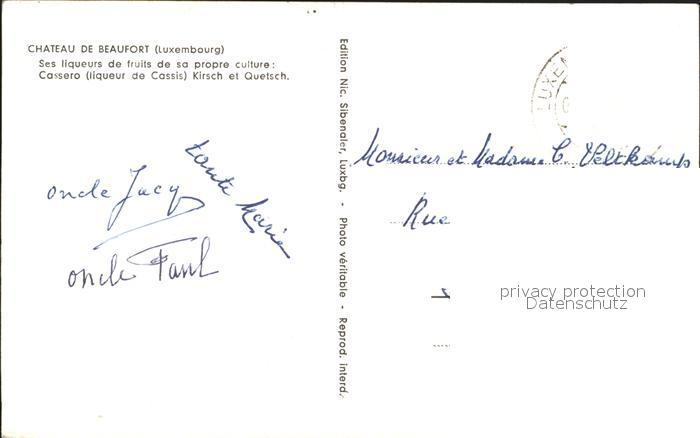 CHATEAU DE BEAUFORT (Luxembourg)
Ses liqueurs de fruits de sa propre culture:
Cassero (liqueur de Cassis) Kirsch et Quetsch.
oncle Jacy
tante Maria
oncle Paul
Edition Nic. Sibenaler, Luxbg. - Photo véritable - Reprod. interd.
LUXEM
Monsieur et Madame C. Veltkamp
Rue
privacy protection
Datenschutz